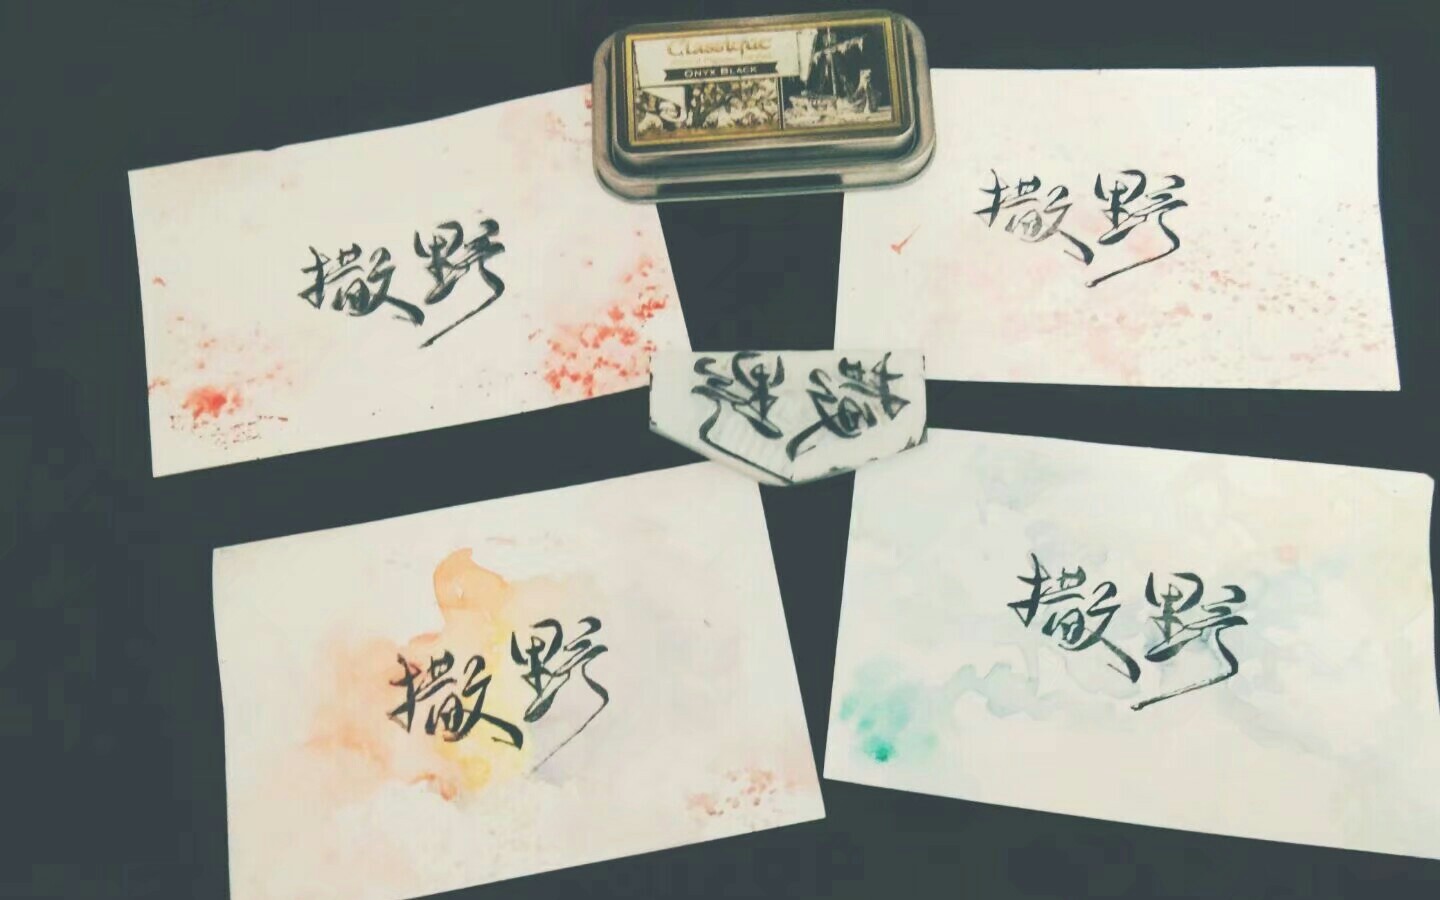 Classique
ONYX BLACK
撒野
撒野
撒野
撒野
撒野